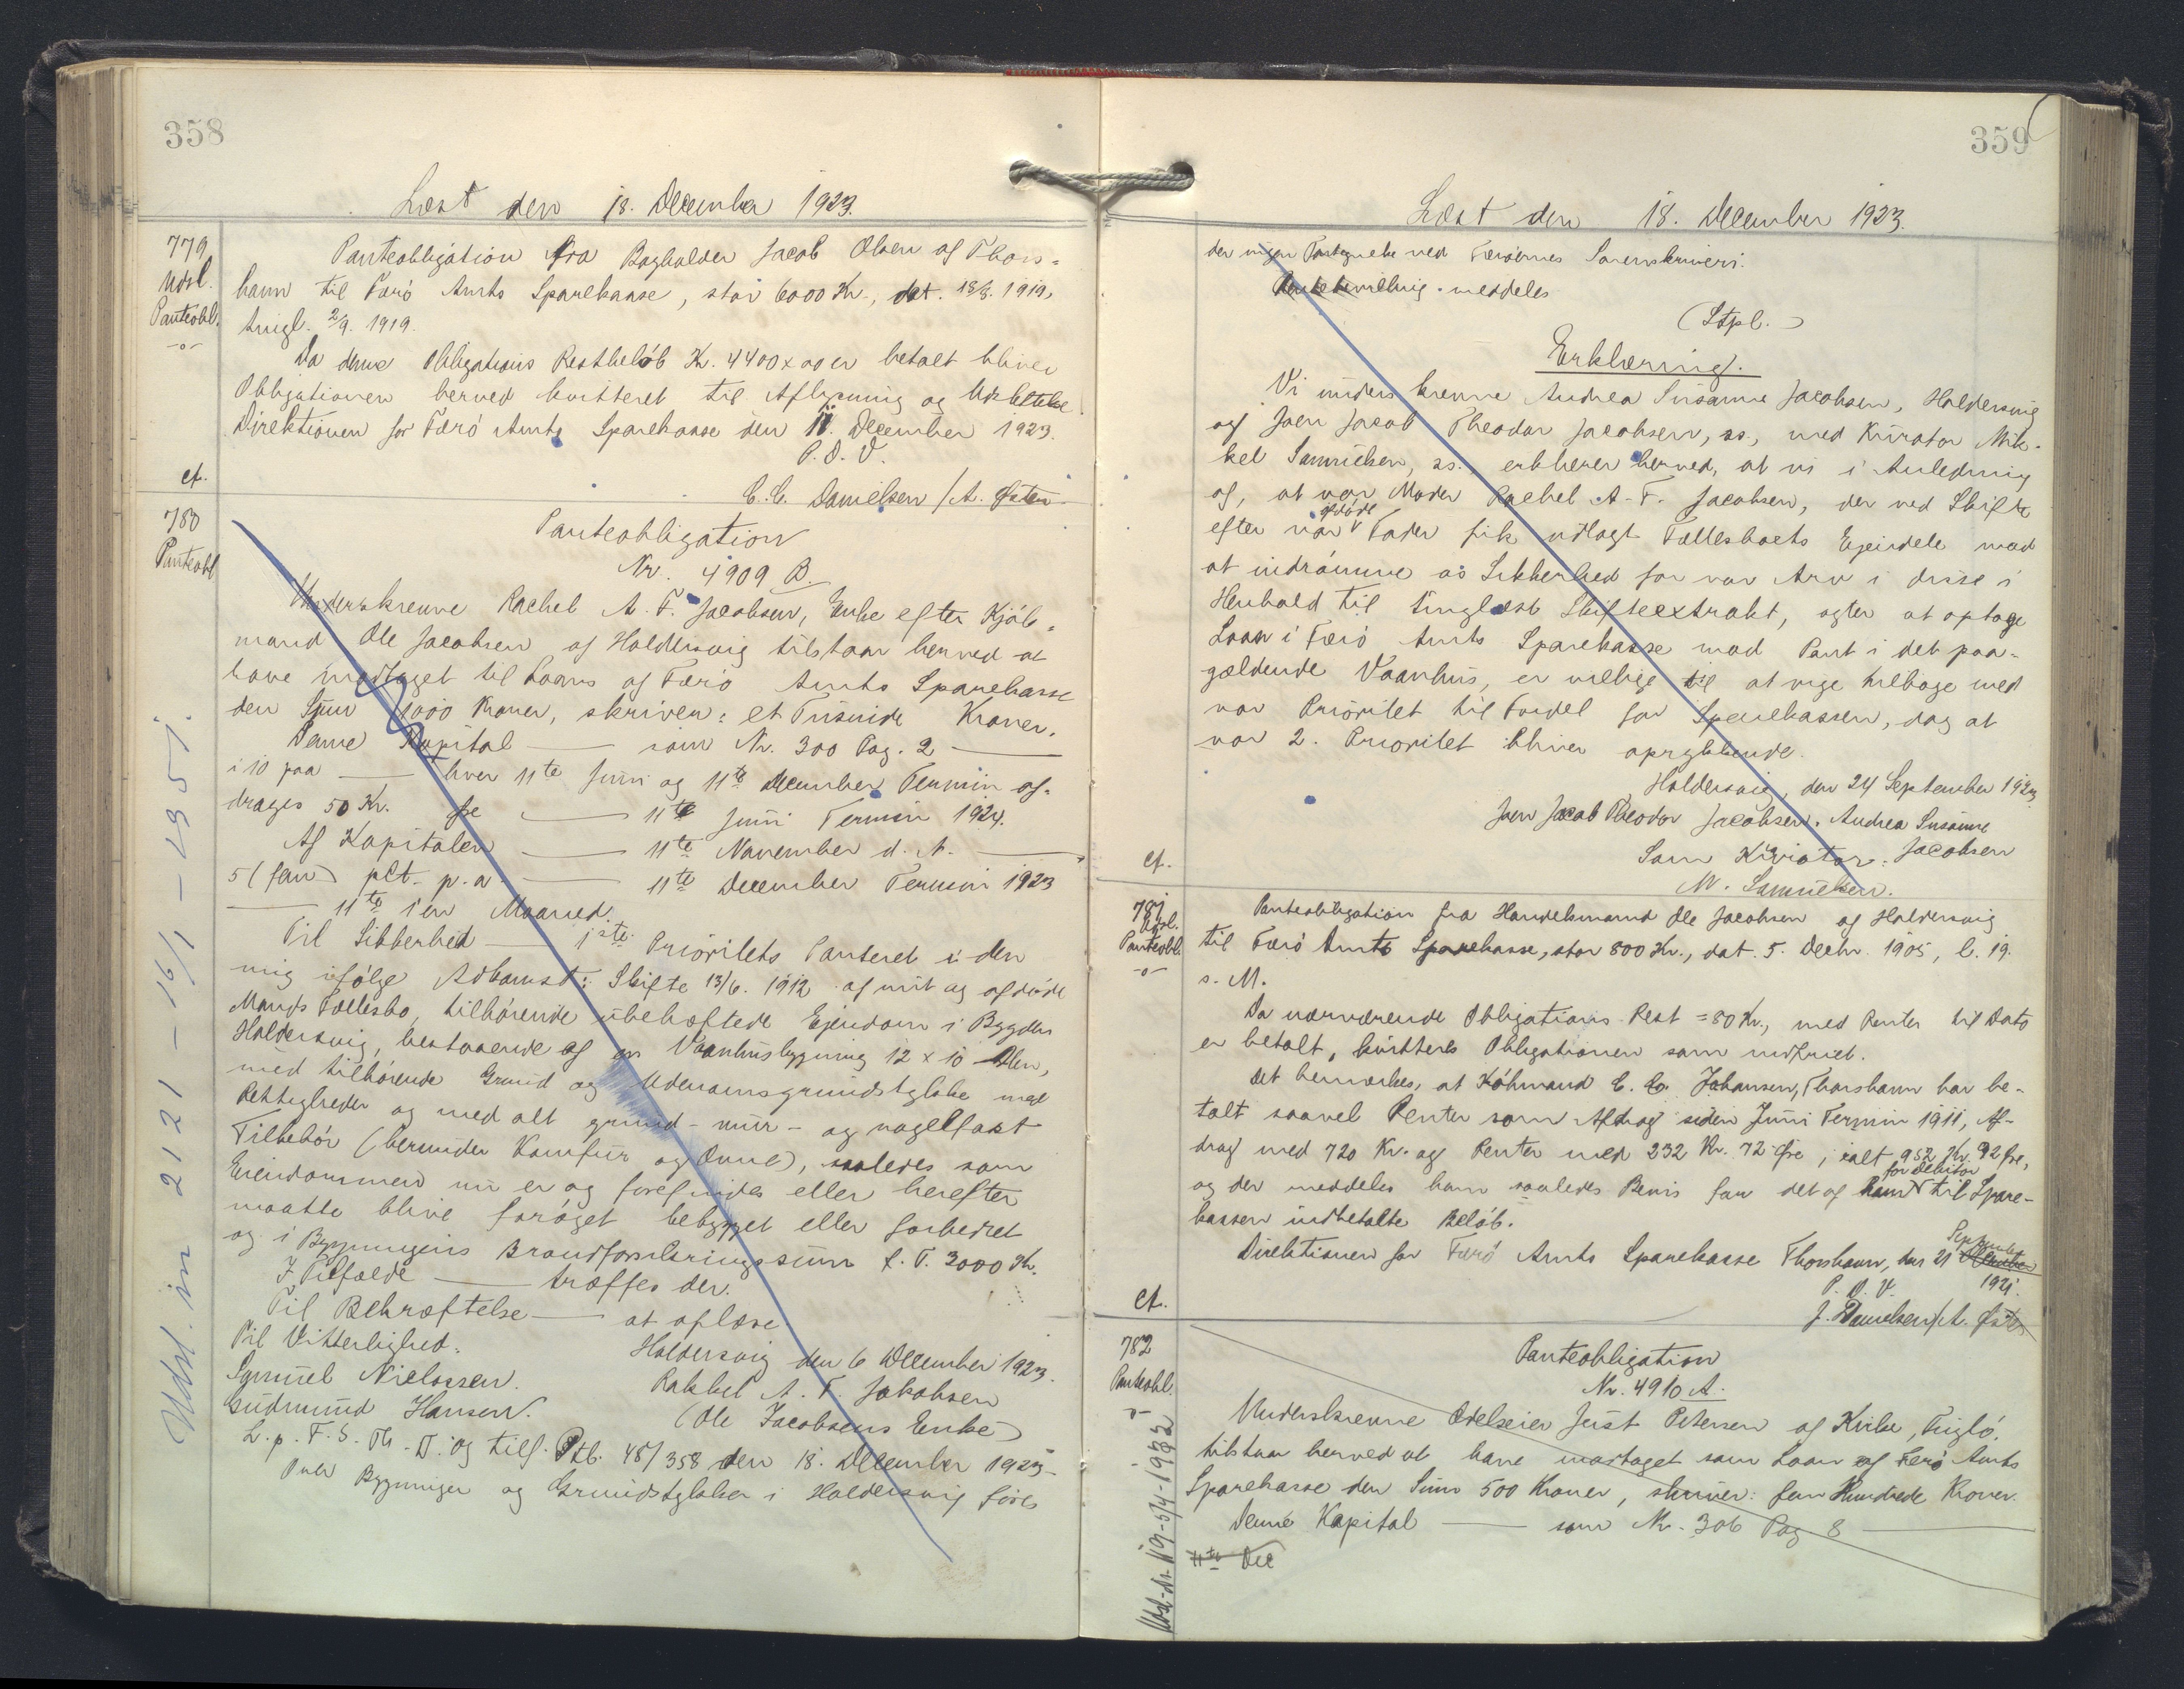 358
Læst den 18. December 1923.
779
Udsl.
Panteobl.
Panteobligation fra Bogholder Jacob Olsen af Thors=
havn til Færö Amts Sparekasse, stor 6000 Kr., dat. 18/8. 1919,
tingl. 2/9. 1919.
Da denne Obligations Restbelöb Kr. 4400 x 00 er betalt bliver
Obligationen herved kvitteret til Aflysning og Udslettelse
Direktionen for Færö Amts Sparekasse den 11. December 1923.
P. D. V.
C. C. Danielsen / A.
ct.
780
Panteobl
Panteobligation
Nr. 4909 B.
Underskrevne Rachel A. F. Jacobsen, Enke efter Kjöb=
mand Ole Jacobsen af Haldersvig tilstaar herved at
have modtaget til Laans af Færö Amts Sparekasse
den Sum 1000 Kroner, skriver: et Tusinde Kroner.
Denne Kapital — som Nr. 300 Pag. 2 —
i 10 paa — hver 11te Juni og 11te December Termin af=
drages 50 Kr. — 11te Juni Termin 1924.
Af Kapitalen — 11te November d. A. —
5 (fem) pCt. p. a. — 11te December Termin 1923
— 11te i en Maaned.
Til Sikkerhed — 1ste Prioritets Panteret i den
mig ifölge Adkomst: Skifte 13/6. 1912 af mit og afdöde
Mands Fællesbo, tilhörende ubehæftede Ejendom i Bygden
Haldersvig, bestaaende af en Vaanhusbygning 12 x 10 Alen,
med tilhörende Grund og Udenomsgrundstykke med
Rettigheder og med alt grund- mur- og nagelfast
Tilbehör (herunder Komfur og Ovne), saaledes som
Eiendommen nu er og forefindes eller herefter
maatte blive foröget bebygget eller forbedret
og i Bygningens Brandforsikringssum f. T. 3000 Kr.
I Tilfælde — træffes der.
Til Bekræftelse — at oplæse
Til Vitterlighed.
Haldersvig den 6 December 1923.
Samuel Nielassen.
Rakkel A. F. Jakobsen
Gudmund Hansen.
(Ole Jacobsens Enke)
L. p. F. S. Th. D. og tilf. Ptb. 48/358 den 18. December 1923.
Over Bygninger og Grundstykker i Haldersvig föres
Udsl. im 2121 – 16/1 – 1951.
359
Læst den 18. December 1923.
der ingen Panteprotokol ved Færöernes Sorenskriveri.
meddeles
(Stpl.)
Erklæring.
Vi underskrevne Andrea Susanne Jacobsen, Haldersvig
og Joen Jacob Theodor Jacobsen, ss., med Kurator Mik-
kel Samuelsen, ss., erklærer herved, at vi i Anledning
af, at vor Moder Rachel A. F. Jacobsen, der ved Skifte
efter vor afdöde Fader fik udlagt Fællesboets Ejendele mod
at indrömme os Sikkerhed for vor Arv i disse i
Henhold til tinglæst Skifteextrakt, agter at optage
Laan i Færö Amts Sparekasse mod Pant i det paa-
gældende Vaanhus, er villige til at vige tilbage med
vor Prioritet til Fordel for Sparekassen, dog at
vor 2. Prioritet bliver oprykkende.
Haldersvig, den 24 September 1923
Joen Jacob Theodor Jacobsen. Andrea Susanne
Jacobsen
Som Kurator:
M. Samuelsen.
ct.
781
Udsl.
Panteobl.
Panteobligation fra Handelsmand Ole Jacobsen af Haldersvig
til Færö Amts Sparekasse, stor 800 Kr., dat. 5. Decbr. 1905, l. 19.
s. M.
Da nærværende Obligations Rest = 80 Kr., med Renter til Dato
er betalt, kvitteres Obligationen som indfriet.
Det bemærkes, at Köbmand C. C. Johansen, Thorshavn har be-
talt saavel Renter som Afdrag siden Juni Termin 1911, Af-
drag med 720 Kr. og Renter med 232 Kr. 72 Öre, i alt 952 Kr. 92 Öre,
og der meddeles ham saaledes Bevis for det af ham for Debitor til Spare-
kassen indbetalte Belöb.
Direktionen for Færö Amts Sparekasse Thorshavn, den 21 September
1921.
P. D. V.
J. Danielsen / A.
ct.
782
Panteobl.
Panteobligation
Nr. 4910 A.
Underskrevne Odelseier Just Petersen af Kirke, Fuglö,
tilstaar herved at have modtaget som Laan af Færö Amts
Sparekasse den Sum 500 Kroner, skriver: fem Hundrede Kroner.
Denne Kapital — som Nr. 306 Pag 8 —
11te Dec